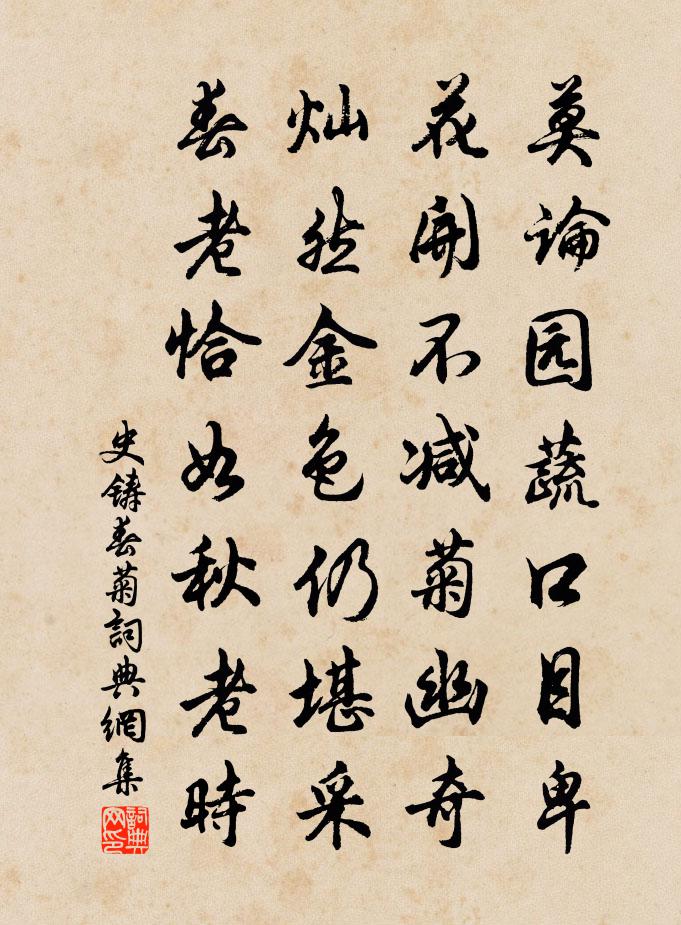 莫論园蔬口目卑
花開不减菊幽奇
灿然金色仍堪采
春老恰如秋老時
史鑄春菊詞典網集
詞典网印